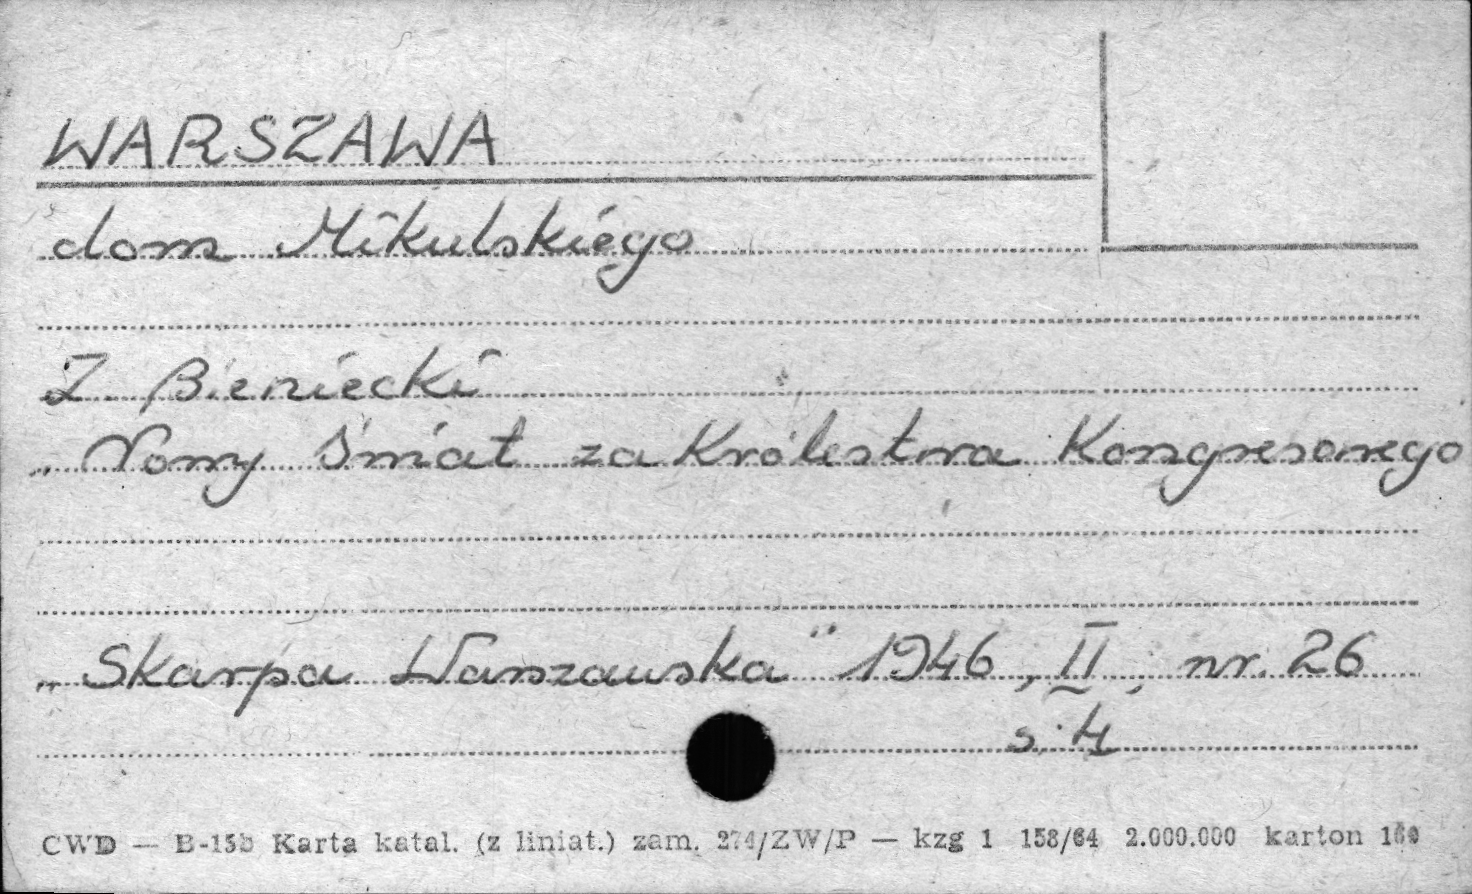 WARSZAWA
dom Mikulskiego
Z. Bieniecki
„Nowy Świat za Królestwa Kongresowego
„Skarpa Warszawska" 1946, II, nr. 26
s. 4
CWD — B-15b Karta katal. (z liniat.) zam. 274/ZW/P — kzg 1 158/64 2.000.000 karton